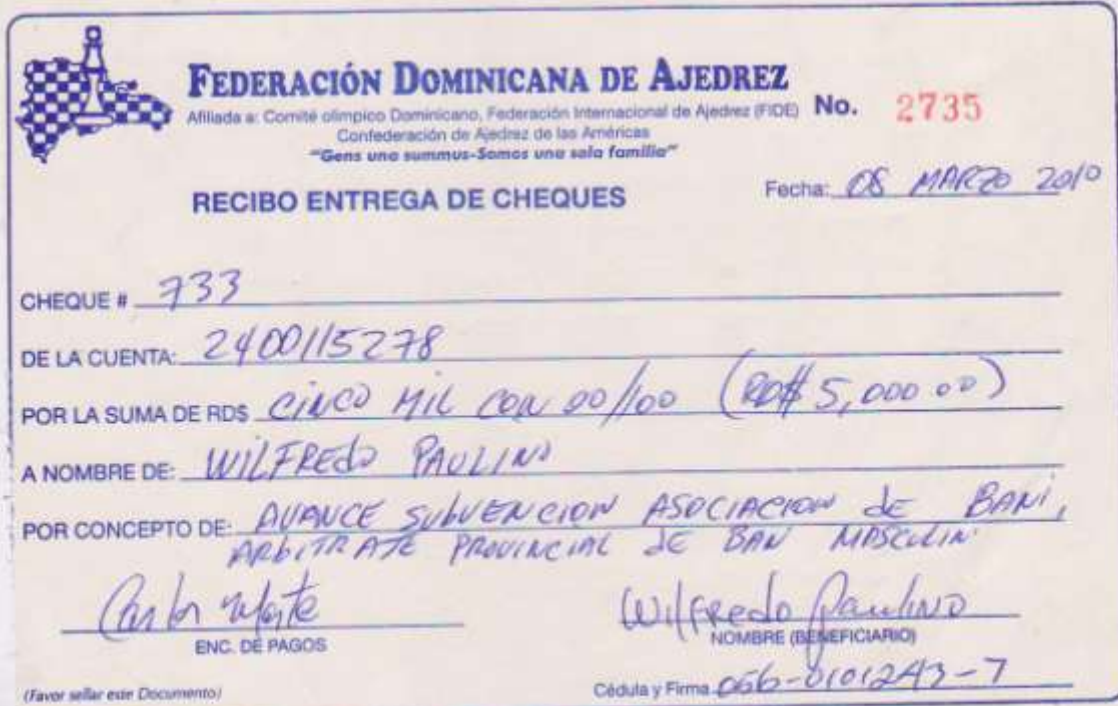 FEDERACIÓN DOMINICANA DE AJEDREZ
Afiliada a: Comité olimpico Dominicano, Federación Internacional de Ajedrez (FIDE) No. 2735
Confederación de Ajedrez de las Américas
"Gens una summus-Somos una sola familia"
RECIBO ENTREGA DE CHEQUES Fecha: 08 MARZO 2010
CHEQUE # 733
DE LA CUENTA: 2400115278
POR LA SUMA DE RD$ CINCO MIL CON 00/100 (RD$ 5,000 00)
A NOMBRE DE: WILFREDO PAULINO
POR CONCEPTO DE: AVANCE SUBVENCION ASOCIACION de BANI,
ARBITRAJE PROVINCIAL DE BAN MASCULIN
Carlos
Wilfredo Paulino
ENC. DE PAGOS
NOMBRE (BENEFICIARIO)
(Favor sellar este Documento)
Cédula y Firma 066-0101243-7